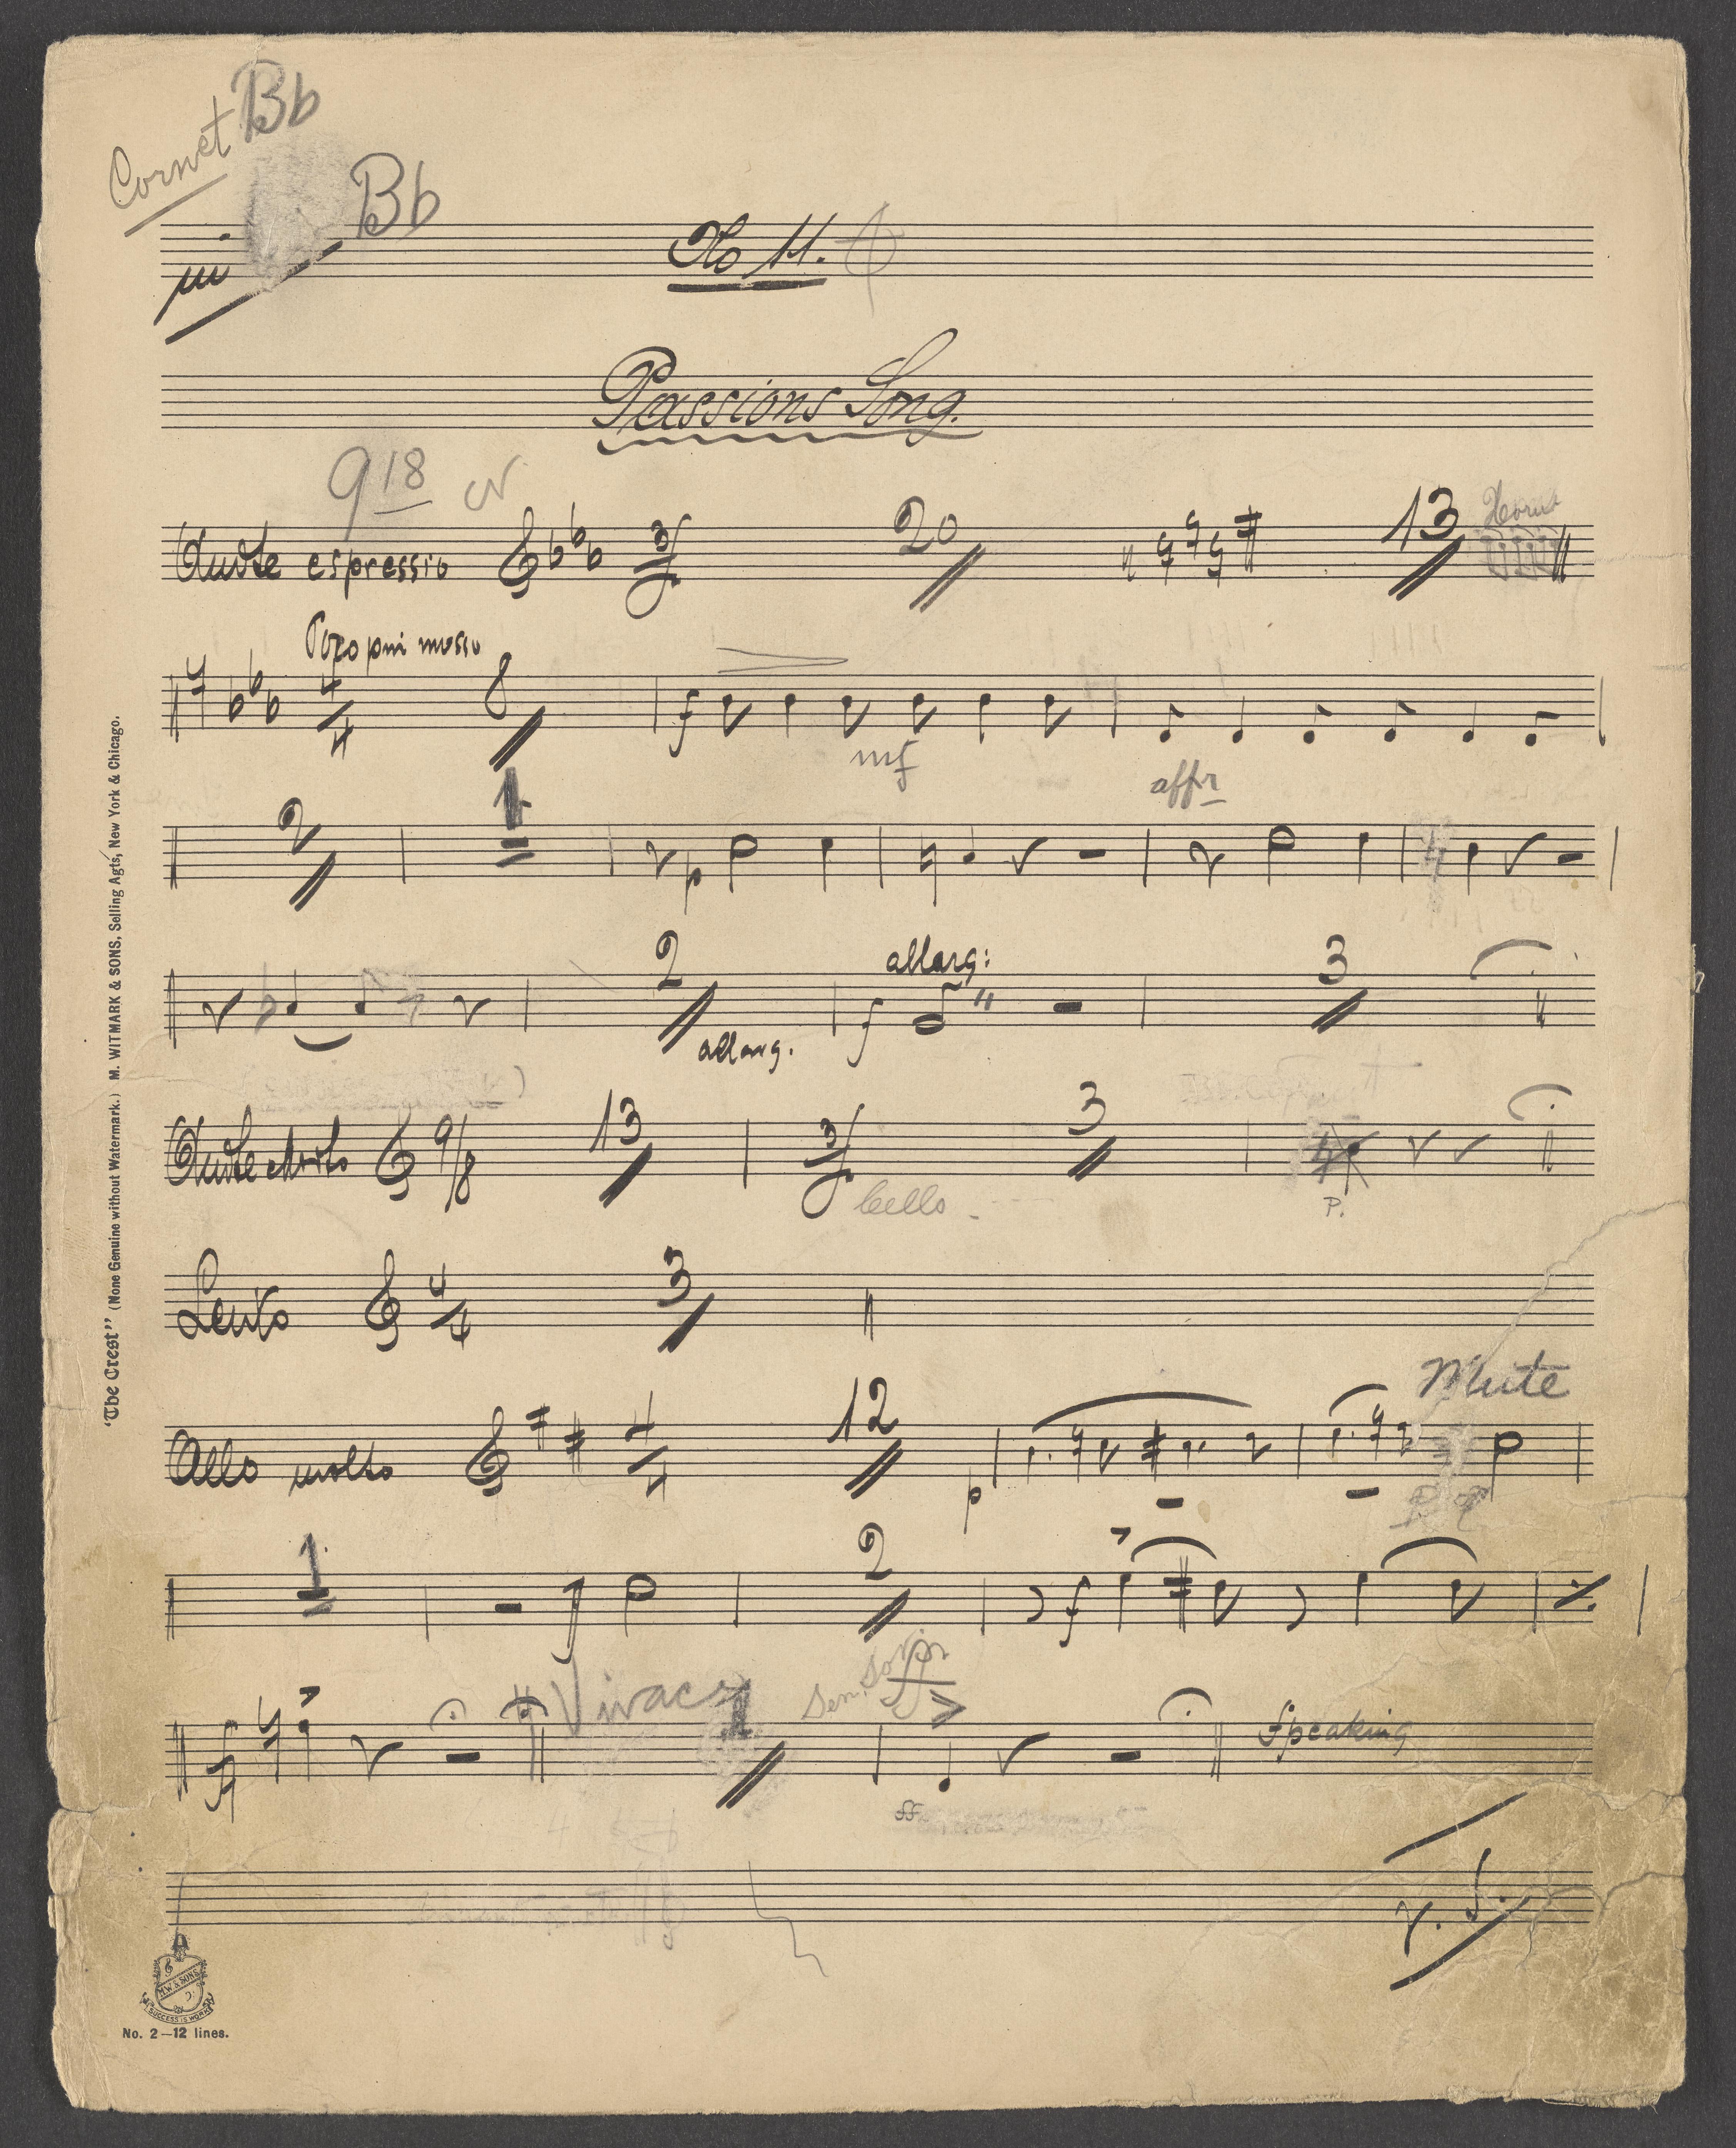 Cornet Bb
Bb
in
No 11.
Passions Song.
918
Andte espressio 20 13 Horns
Poco piu mosso
4/4 8 f
mf
2 1 p
2 allarg: f 3
allarg.
Andte 9/8 13 3 3
Cello
P.
Lento 4/4 3
Mute
Allo molto 4/4 12 p
1 2 f
Vivace 1
ff Speaking
ff
V. S.
"The Crest" (None Genuine without Watermark.) M. WITMARK & SONS, Selling Agts, New York & Chicago.
M.W. & SONS
SUCCESS IS WORK
No. 2–12 lines.